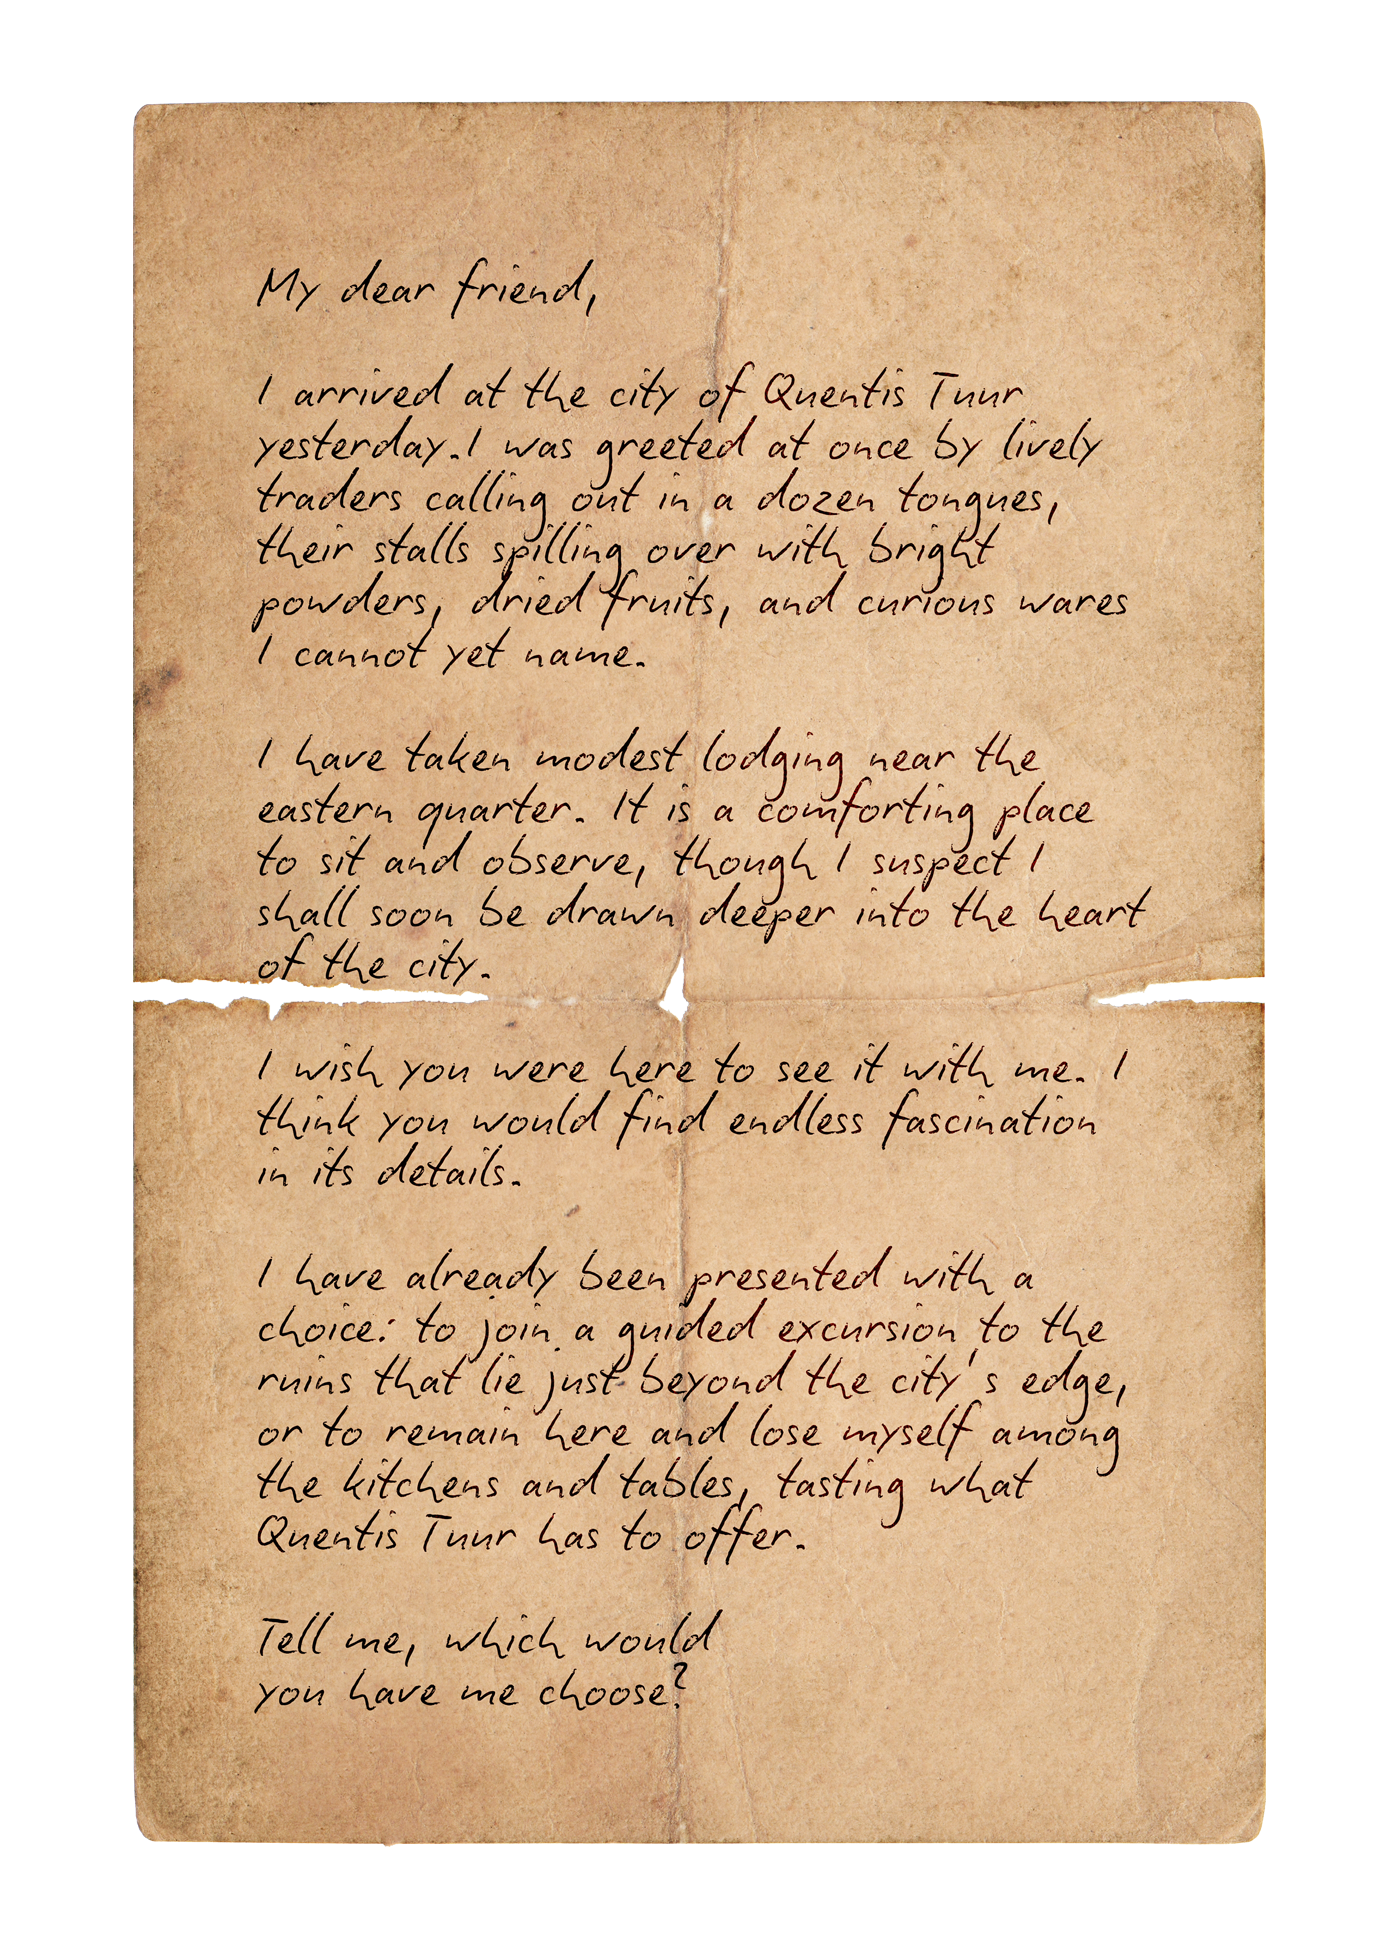 My dear friend,
I arrived at the city of Quentis Tuur
yesterday. I was greeted at once by lively
traders calling out in a dozen tongues,
their stalls spilling over with bright
powders, dried fruits, and curious wares
I cannot yet name.
I have taken modest lodging near the
eastern quarter. It is a comforting place
to sit and observe, though I suspect I
shall soon be drawn deeper into the heart
of the city.
I wish you were here to see it with me. I
think you would find endless fascination
in its details.
I have already been presented with a
choice: to join a guided excursion to the
ruins that lie just beyond the city's edge,
or to remain here and lose myself among
the kitchens and tables, tasting what
Quentis Tuur has to offer.
Tell me, which would
you have me choose?